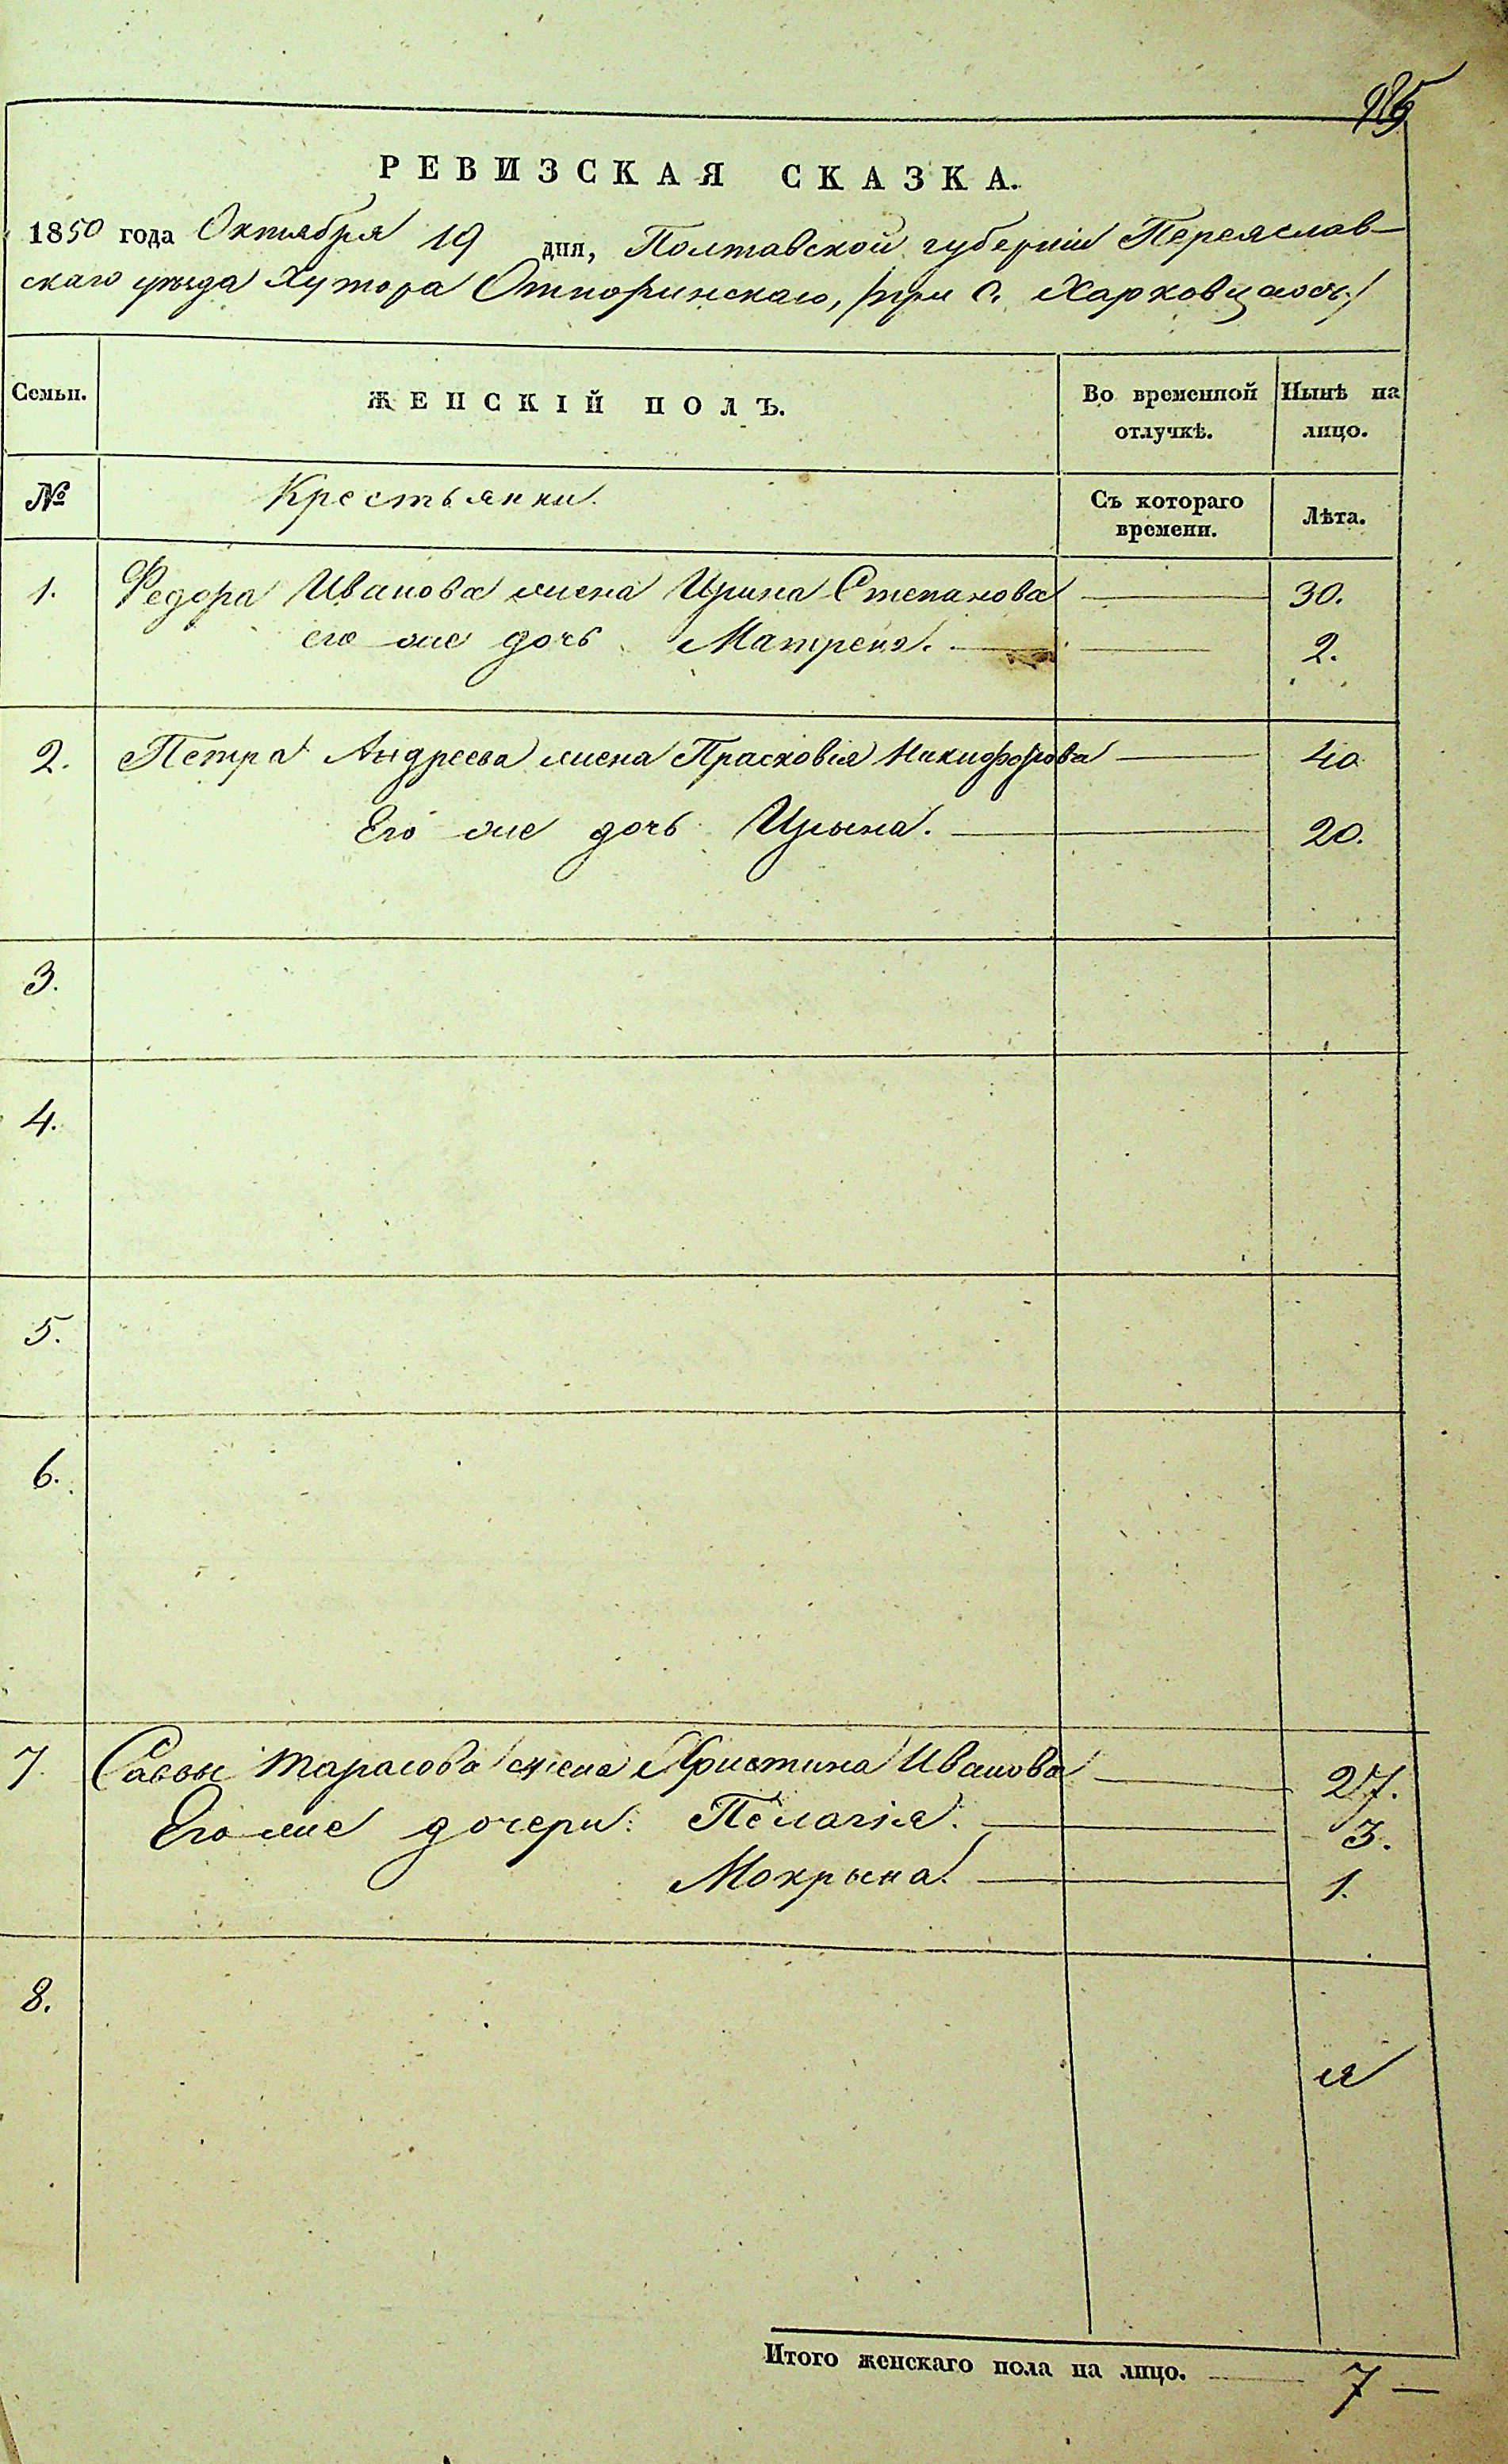 РЕВИЗСКАЯ СКАЗКА.
1850 года Октября 19 дня, Полтавской губерніи Переяслав-
скаго уѣзда Хутора Отпоринскаго, /при с. Харковцахъ./
Семьи.
ЖЕНСКІЙ ПОЛЪ.
Во временной отлучкѣ.
Нынѣ на лицо.
№
Крестьянки.
Съ котораго времени.
Лѣта.
1. Федора Иванова жена Ирина Степанова 30.
его же дочь Матрена. 2.
2. Петра Андреева жена Прасковія Никифорова 40
Его же дочь Ирына. 20.
3.
4.
5.
6.
7. Саввы Тарасова жена Христина Иванова 27.
Его же дочери: Пелагія. 3.
Мокрына. 1.
8.
Итого женскаго пола на лицо. 7 —